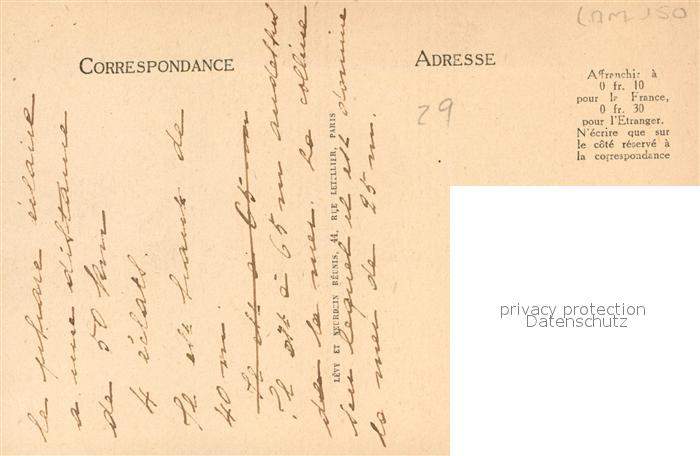 CORRESPONDANCE
ADRESSE
29
Affranchir à
0 fr. 10
pour la France,
0 fr. 30
pour l'Etranger.
N'écrire que sur
le côté réservé à
la correspondance
LÉVY ET NEURDEIN RÉUNIS, 44, RUE LETELLIER, PARIS
le phare éclaire
a une distance
de 50 km
4 éclats.
Il est haut de
40 m.
Il est à 65 m
Il est à 65 m audessus
de la mer. La colline
sur lequel il est domine
la mer de 25 m.
privacy protection
Datenschutz